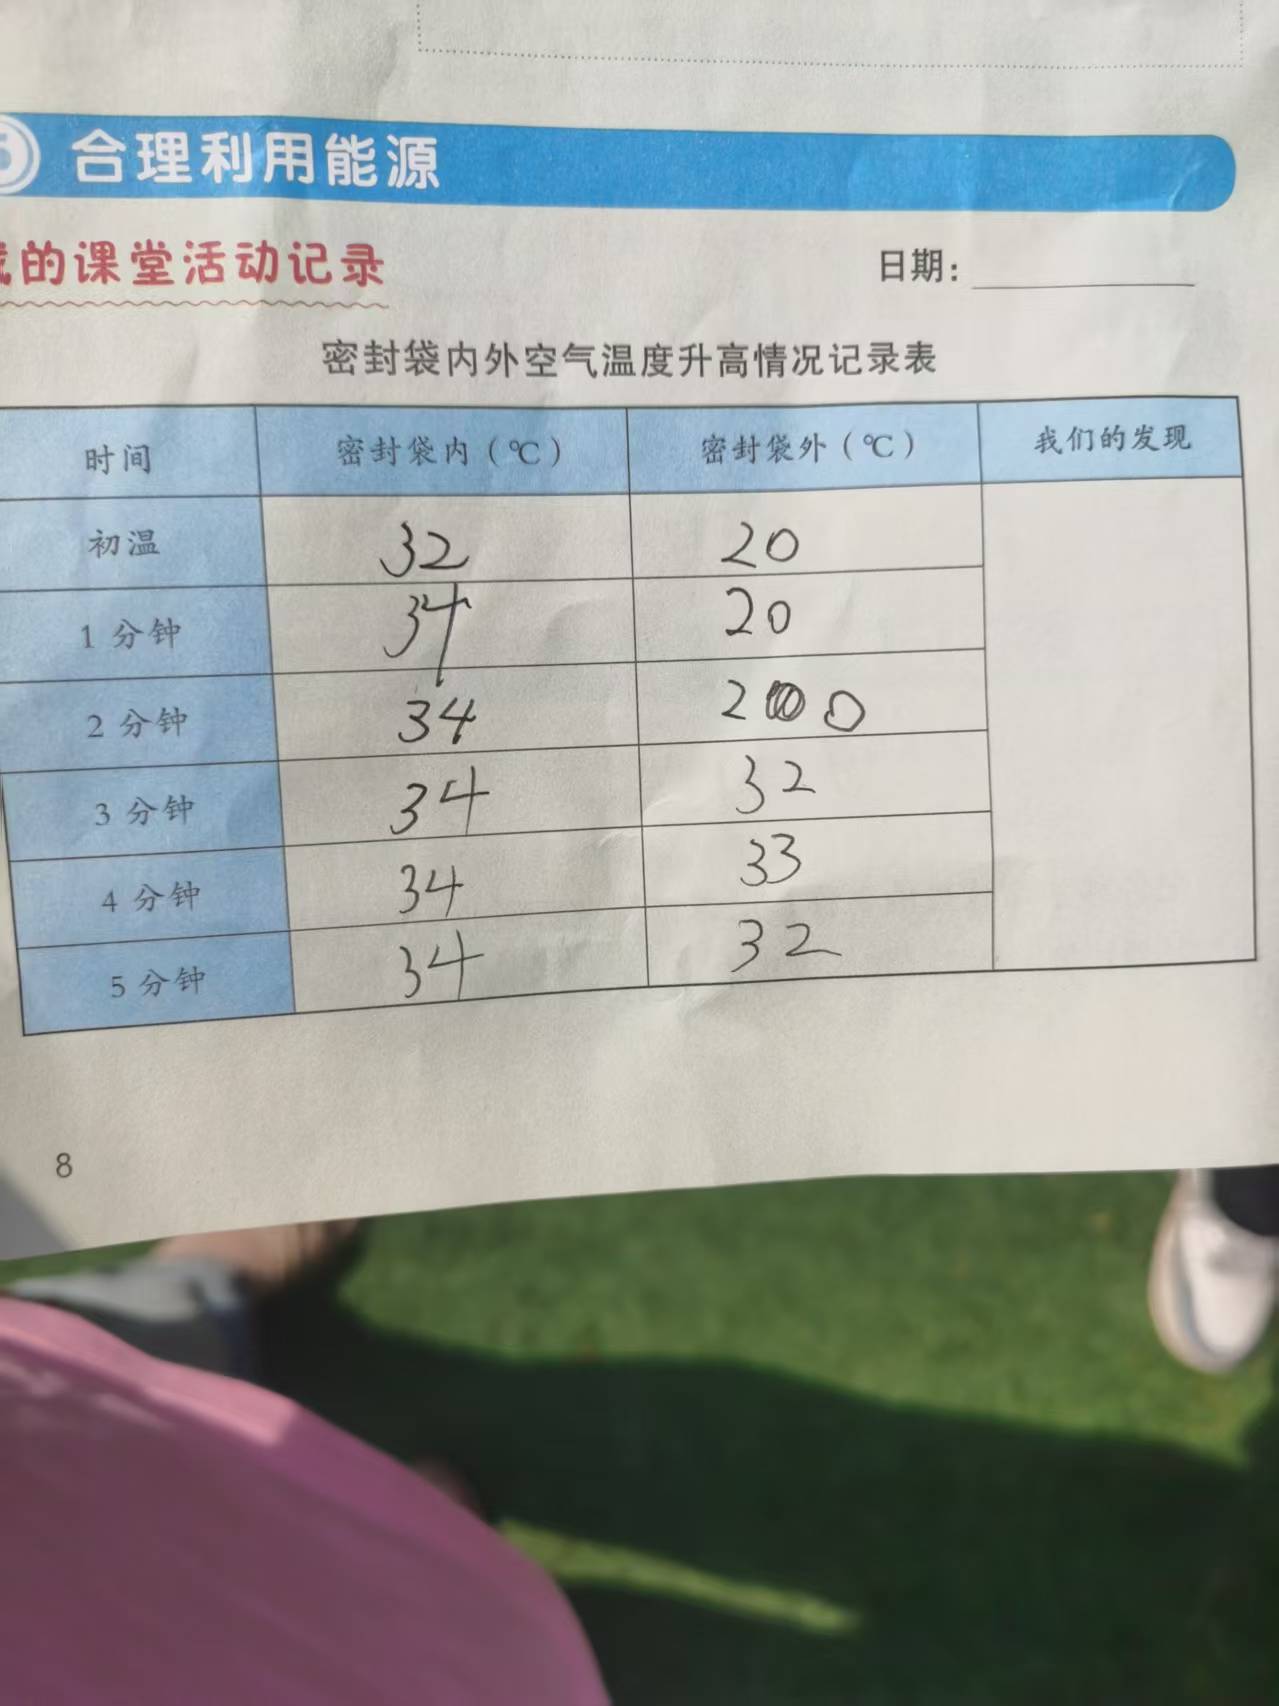 合理利用能源
的课堂活动记录
日期：
密封袋内外空气温度升高情况记录表
时间 密封袋内（℃） 密封袋外（℃） 我们的发现
初温 32 20
1分钟 34 20
2分钟 34 20
3分钟 34 32
4分钟 34 33
5分钟 34 32
8